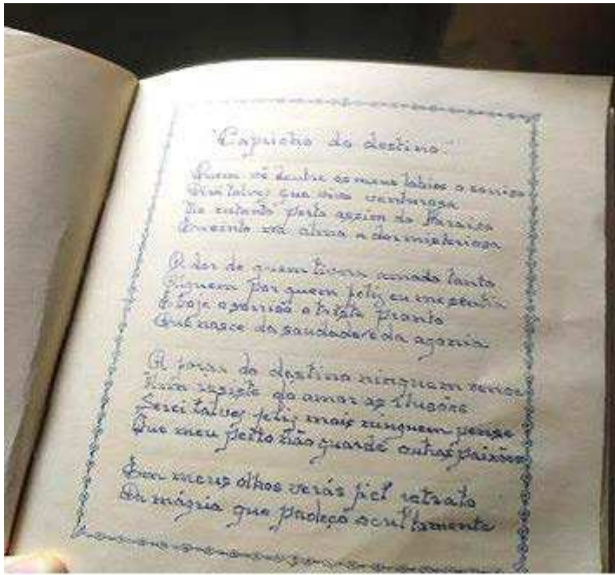 "Capricho do destino."
Quem vê dentre os meus labios o sorriso
Dirá talvez que vivo venturosa
No entanto perto assim do Paraiso
na alma a dor misteriosa
A dor de quem tivera amado tanto
Alguem por quem feliz eu me sentia
E hoje o sorriso e triste pranto
Que nasce da saudade e da agonia
A força do destino ninguem vence
Nem resiste ao amor as ilusões
Serei talvez feliz mais ninguem pense
Que meu peito não guarde outras paixões
Em meus olhos verás fiel retrato
Da mágua que padeço ocultamente